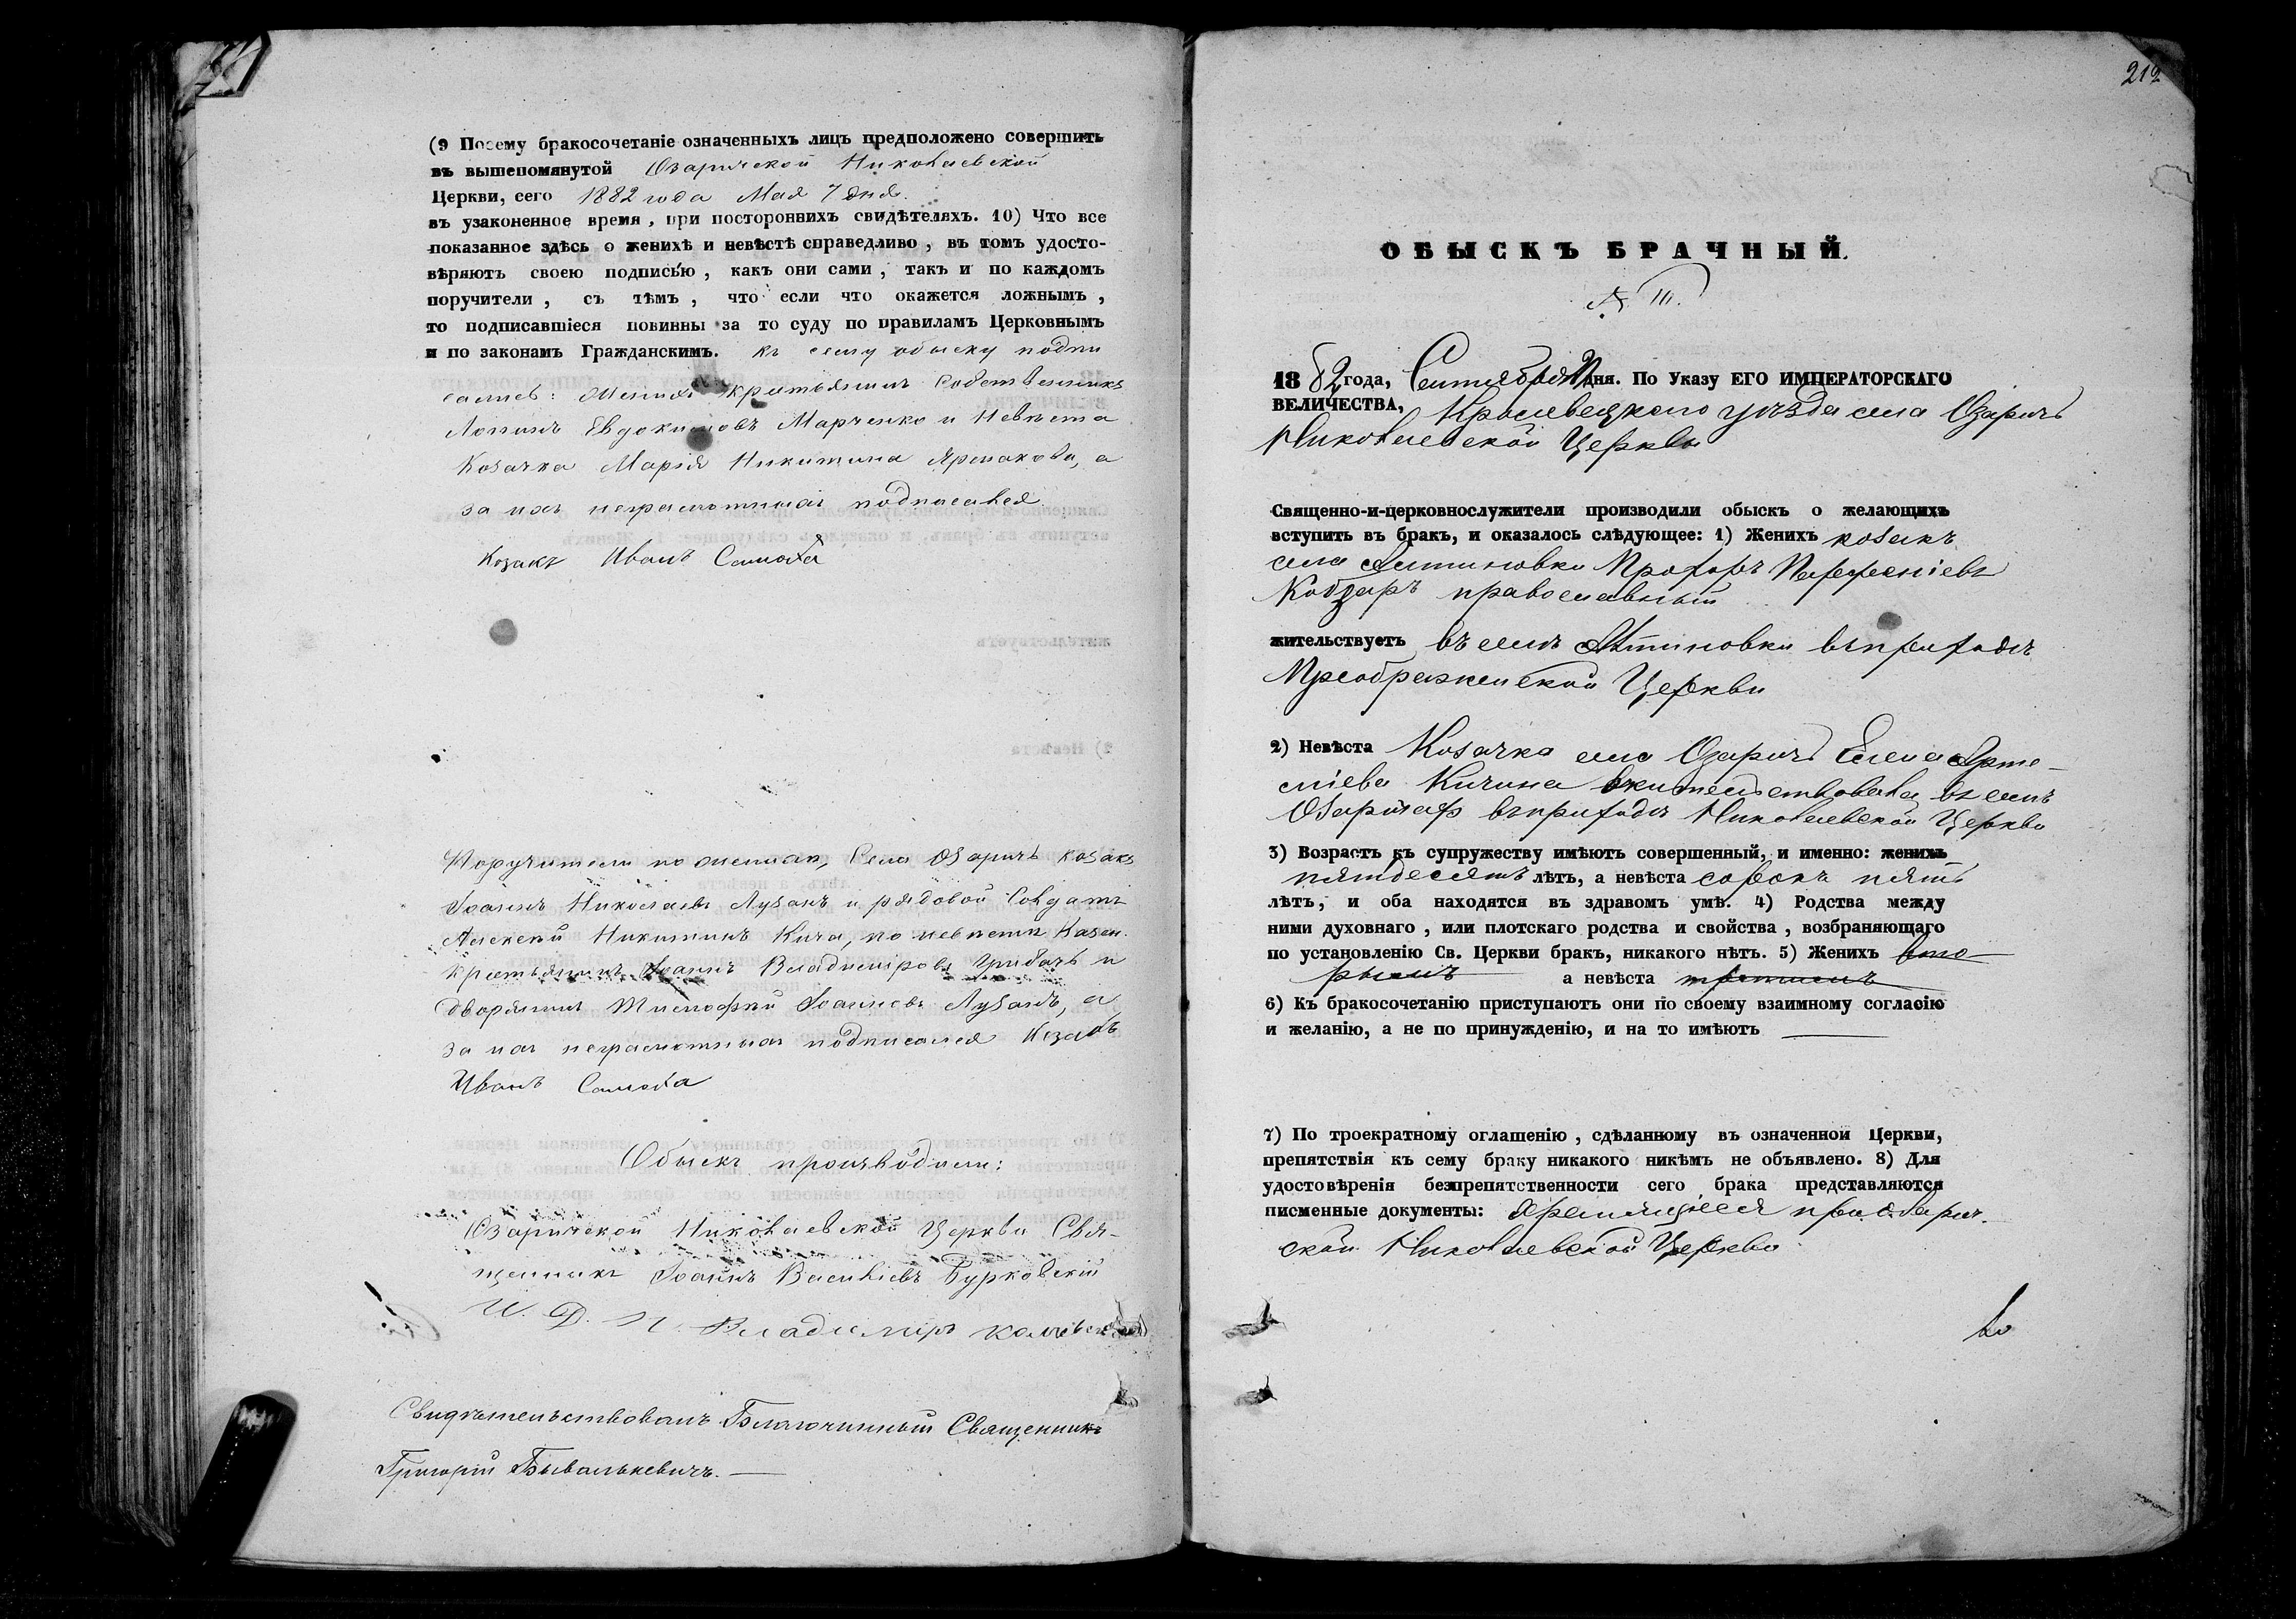 (9 Посему бракосочетаніе означенныхъ лицъ предположено совершить
въ вышепомянутой Озаричской Николаевской
Церкви, сего 1882 года Мая 7 дня.
въ узаконенное время, при постороннихъ свидѣтеляхъ. 10) Что все
показанное здѣсь о женихѣ и невѣстѣ справедливо, въ томъ удосто-
вѣряютъ своею подписью, какъ они сами, такъ и по каждомъ
поручители, съ тѣмъ, что если что окажется ложнымъ,
то подписавшіеся повинны за то суду по правиламъ Церковнымъ
и по законамъ Гражданскимъ. къ сему обыску подпи
сались: Женихъ крестьянинъ Собственникъ
Евдокимовъ Марченко и Невѣста
Козачка Марія Никитина Ярмакова, а
за ихъ неграмотныхъ подписался
Козакъ Иванъ Самойла
Поручители по женихѣ, Села Озаричъ козакъ
Іоаннъ Николаевъ Лузанъ и рядовой Солдатъ
Алексѣй Никитинъ Кича, по невѣстѣ Казен.
крестьянинъ Іоаннъ Владиміровъ Грибачъ и
дворянинъ Тимофей Іоанновъ Лузанъ, а
за ихъ неграмотныхъ подписался Козакъ
Иванъ Самойла
Обыскъ производили:
Озаричской Николаевской Церкви Свя-
щенникъ Іоаннъ Василіевъ Бурковскій
И. Д. П. Владиміръ
Свидѣтельствовалъ Благочинный Священникъ
Григорій Бывалькевичъ.
212
ОБЫСКЪ БРАЧНЫЙ.
№ 111.
1882 года, Сентября дня. По Указу ЕГО ИМПЕРАТОРСКАГО
ВЕЛИЧЕСТВА, Кролевецкаго уѣзда села Озаричъ
Николаевской Церкви
Священно-и-церковнослужители производили обыскъ о желающихъ
вступить въ бракъ, и оказалось слѣдующее: 1) Женихъ козакъ
села Алтиновки Прохоръ Парфеніевъ
Кобзаръ православный
жительствуетъ въ селѣ Алтиновки въ приходѣ
Преображенской Церкви
2) Невѣста Козачка села Озаричъ Елена Арте-
міева Кичина жительствовала въ селѣ
Озаричахъ въ приходѣ Николаевской Церкви
3) Возрастъ къ супружеству имѣютъ совершенный, и именно: женихъ
пятдесятъ лѣтъ, а невѣста сорокъ пять
лѣтъ, и оба находятся въ здравомъ умѣ. 4) Родства между
ними духовнаго, или плотскаго родства и свойства, возбраняющаго
по установленію Св. Церкви бракъ, никакого нѣтъ. 5) Женихъ вто-
рымъ а невѣста третимъ
6) Къ бракосочетанію приступаютъ они по своему взаимному согласію
и желанію, а не по принужденію, и на то имѣютъ
7) По троекратному оглашенію, сдѣланному въ означенной Церкви,
препятствія къ сему браку никакого никѣмъ не объявлено. 8) Для
удостовѣренія безпрепятственности сего брака представляются
писменные документы: хранящіеся при Озарич.
ской Николаевской Церкви